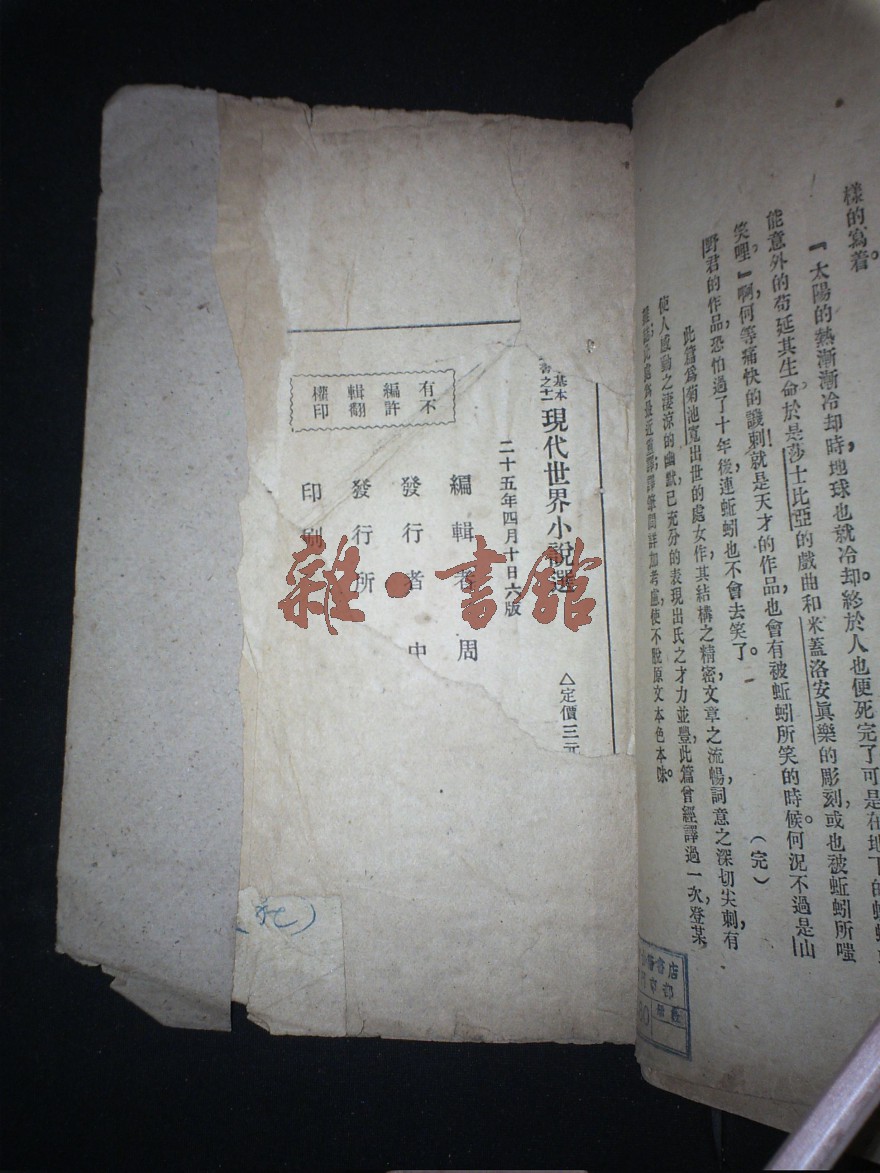 樣的寫着。
『太陽的熱漸漸冷却時，地球也就冷却，終於人也便死完了可是在地下的
能意外的苟延其生命。於是莎士比亞的戲曲和米蓋洛安眞樂的彫刻，或也被蚯蚓所嗤
笑哩。』啊，何等痛快的譏刺！就是天才的作品也會有被蚯蚓所笑的時候。何況不過是山
野君的作品，恐怕過了十年後，連蚯蚓也不會去笑了。
（完）
此篇爲菊池寬出世的處女作，其結構之精密，文章之流暢，詞意之深切尖刺，有
使人感動之淒涼的幽默，已充分的表現出氏之才力並豐，此篇曾經譯過一次，登某
加考慮，使不脫原文本色本味。
基本
書之十
現代世界小說選
△定價三元
二十五年四月十日六版
編輯者 周
發行者 中
發行所
印刷
有不
編許
輯翻
權印
店
雜·書館